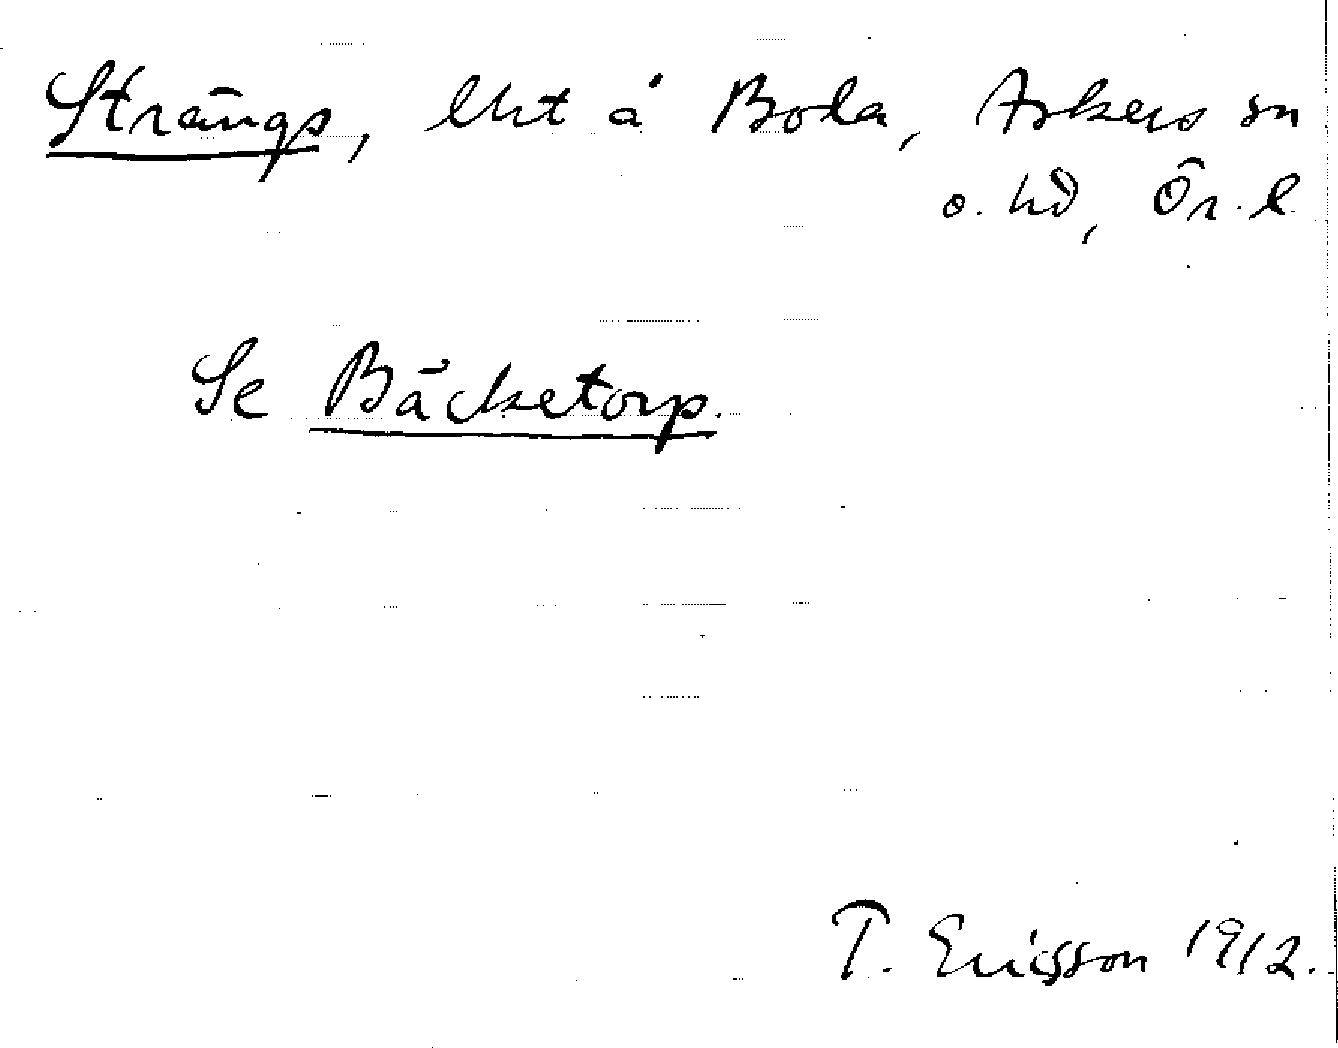 Strängs, lht å Bola, Askers sn
o. hd, Ör. l.
Se Bäcketorp.
T. Ericsson 1912.